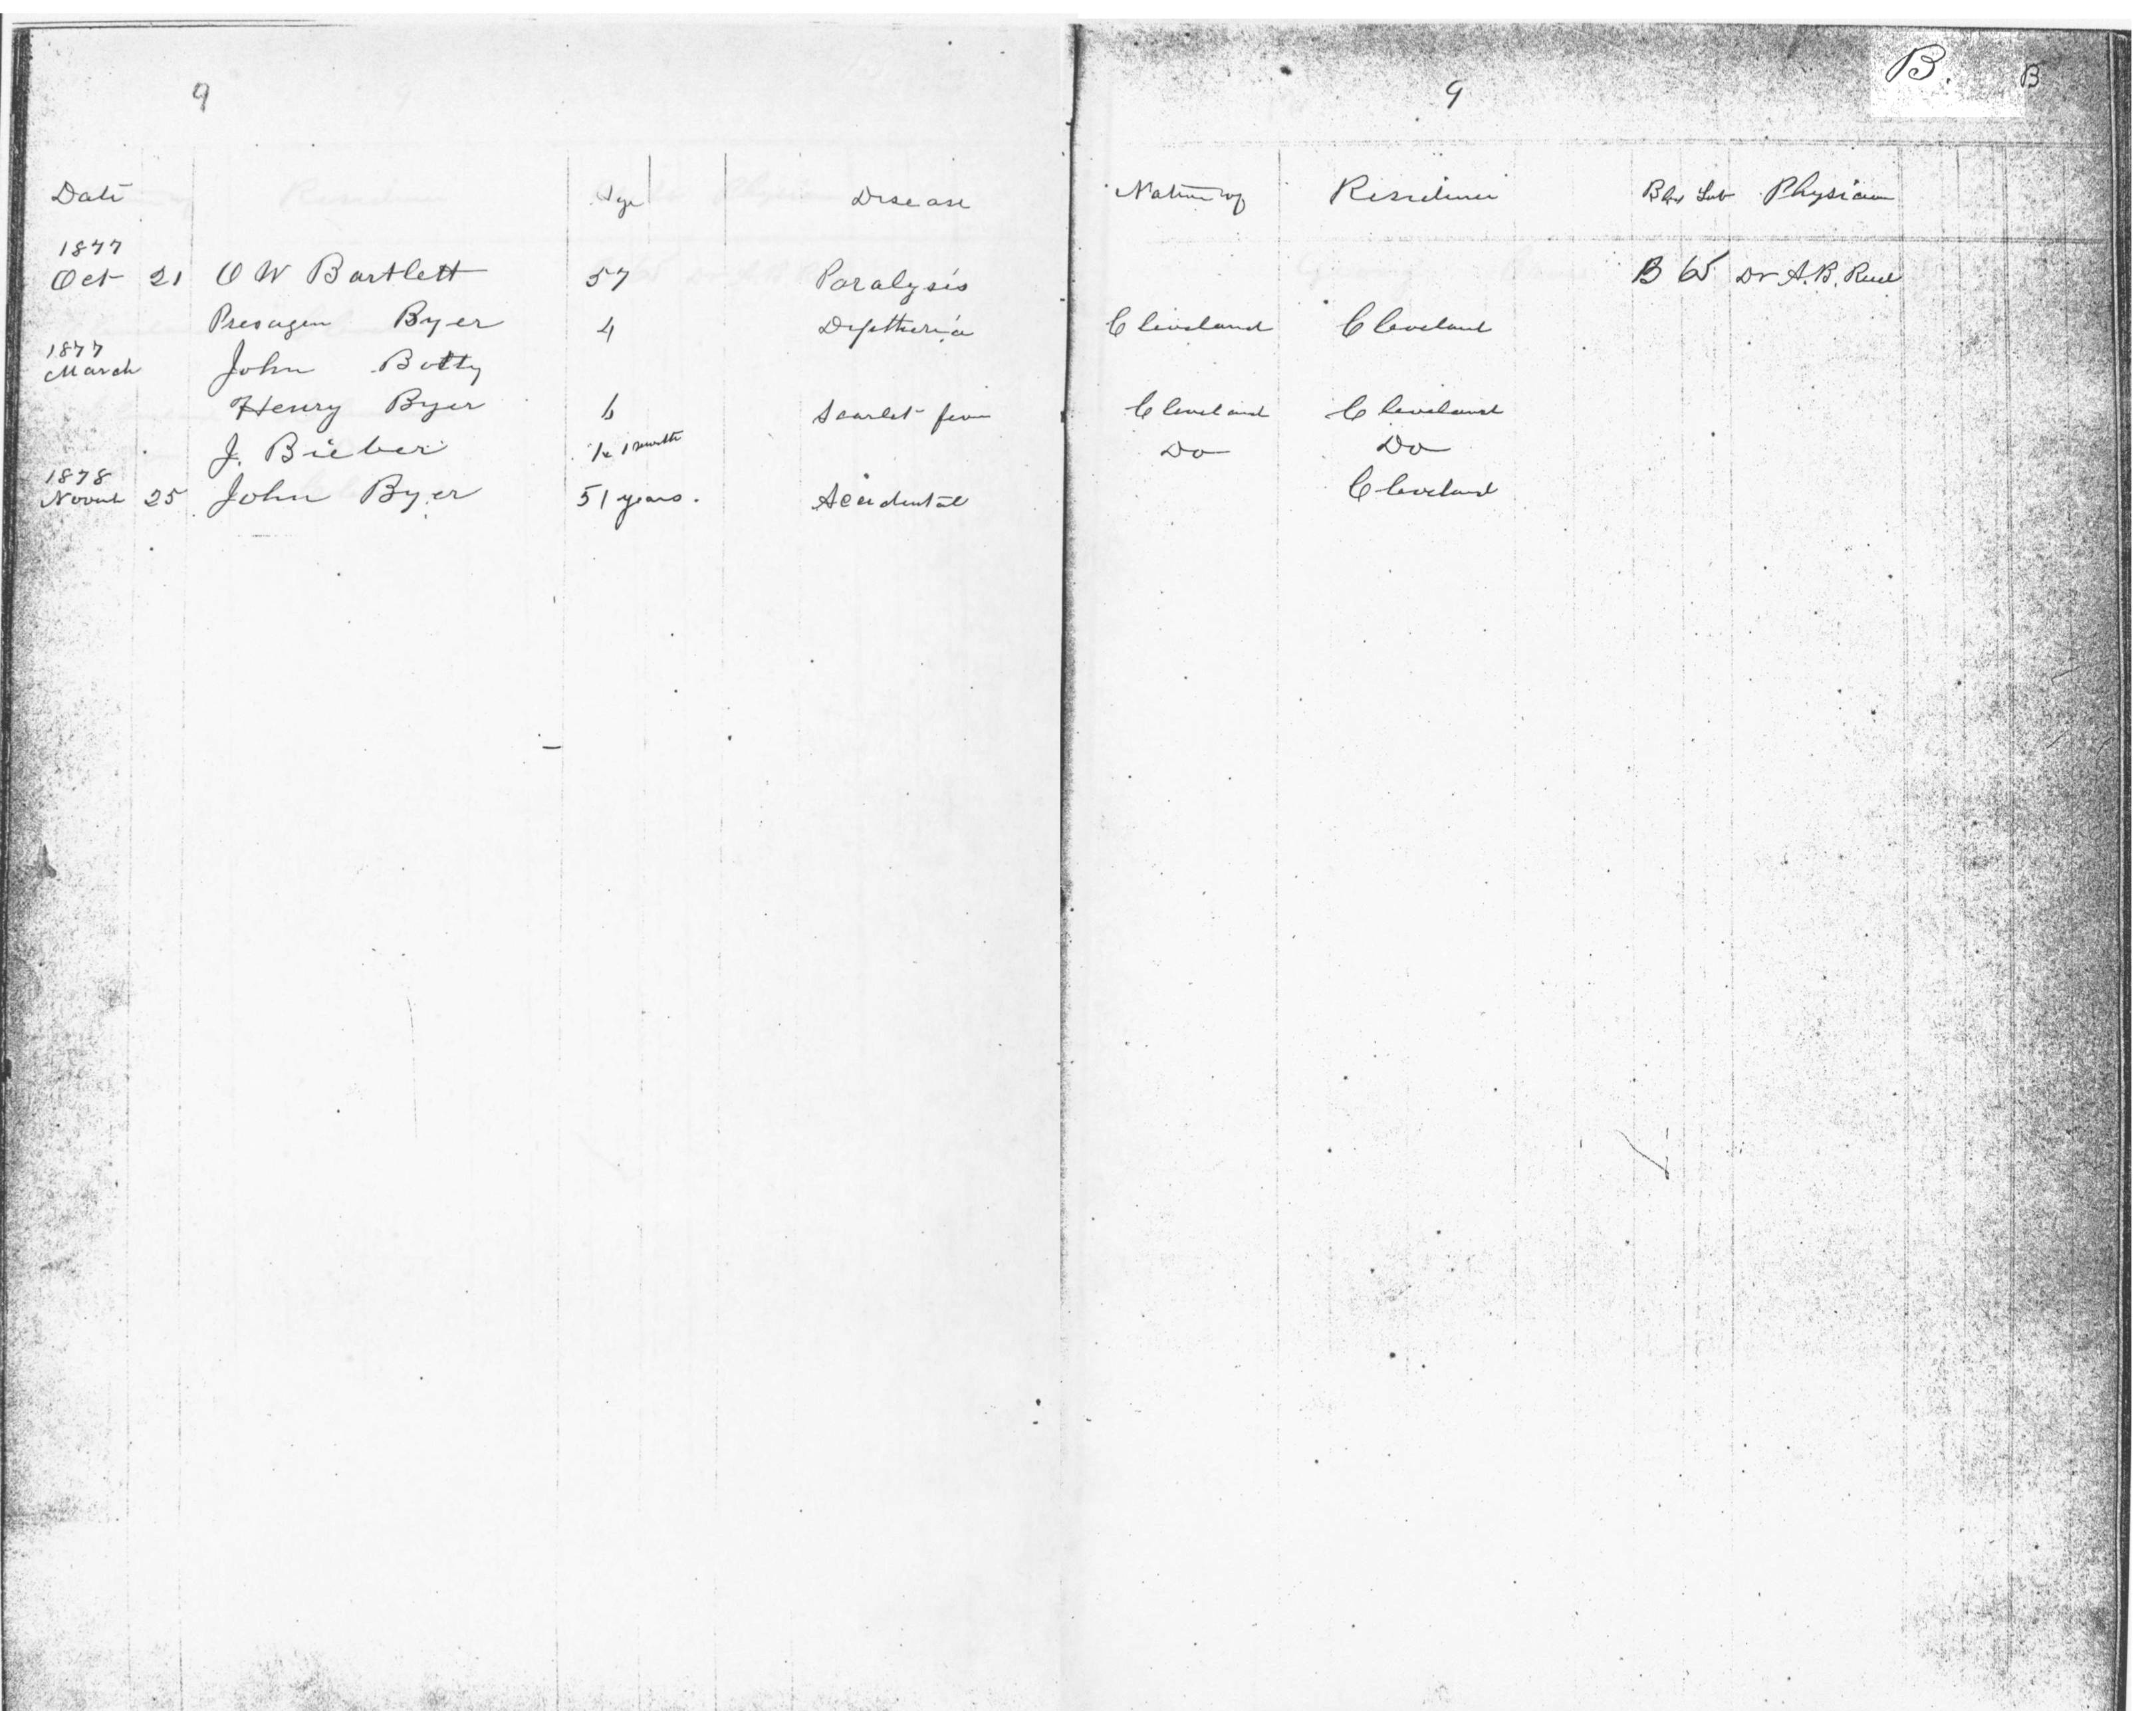 9 9 B. B
Date Age Disease Native of Residence Blk Lot Physician
1877
Oct 21 O W Bartlett 57 Paralysis B 65 Dr A. B.
Byer 4 Diptheria Cleveland Cleveland
1877
March John Botty
Henry Byer 6 Scarlet fever Cleveland Cleveland
J. Bieber 1 month Do Do
1878
25 John Byer 51 years. Accidental Cleveland